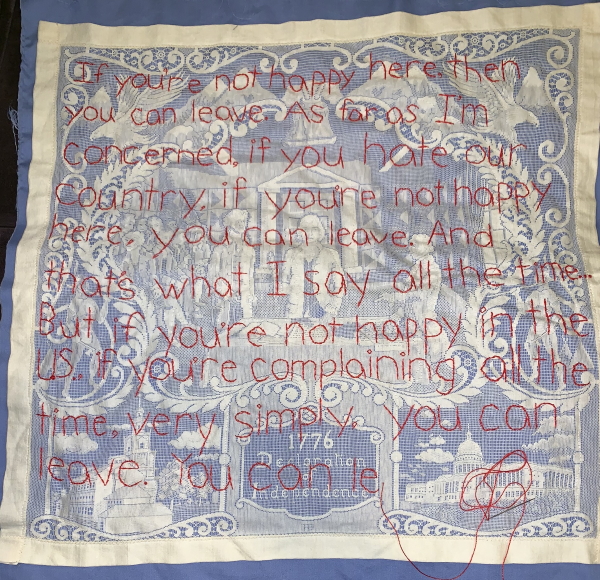 If you're not happy here, then
you can leave. As far as I'm
concerned, if you hate our
Country, if you're not happy
here, you can leave. And
that's what I say all the time...
But if you're not happy in the
U.S., if you're complaining all the
time, very simply, you can
leave. You can le
1776
Declaration
of
Independence